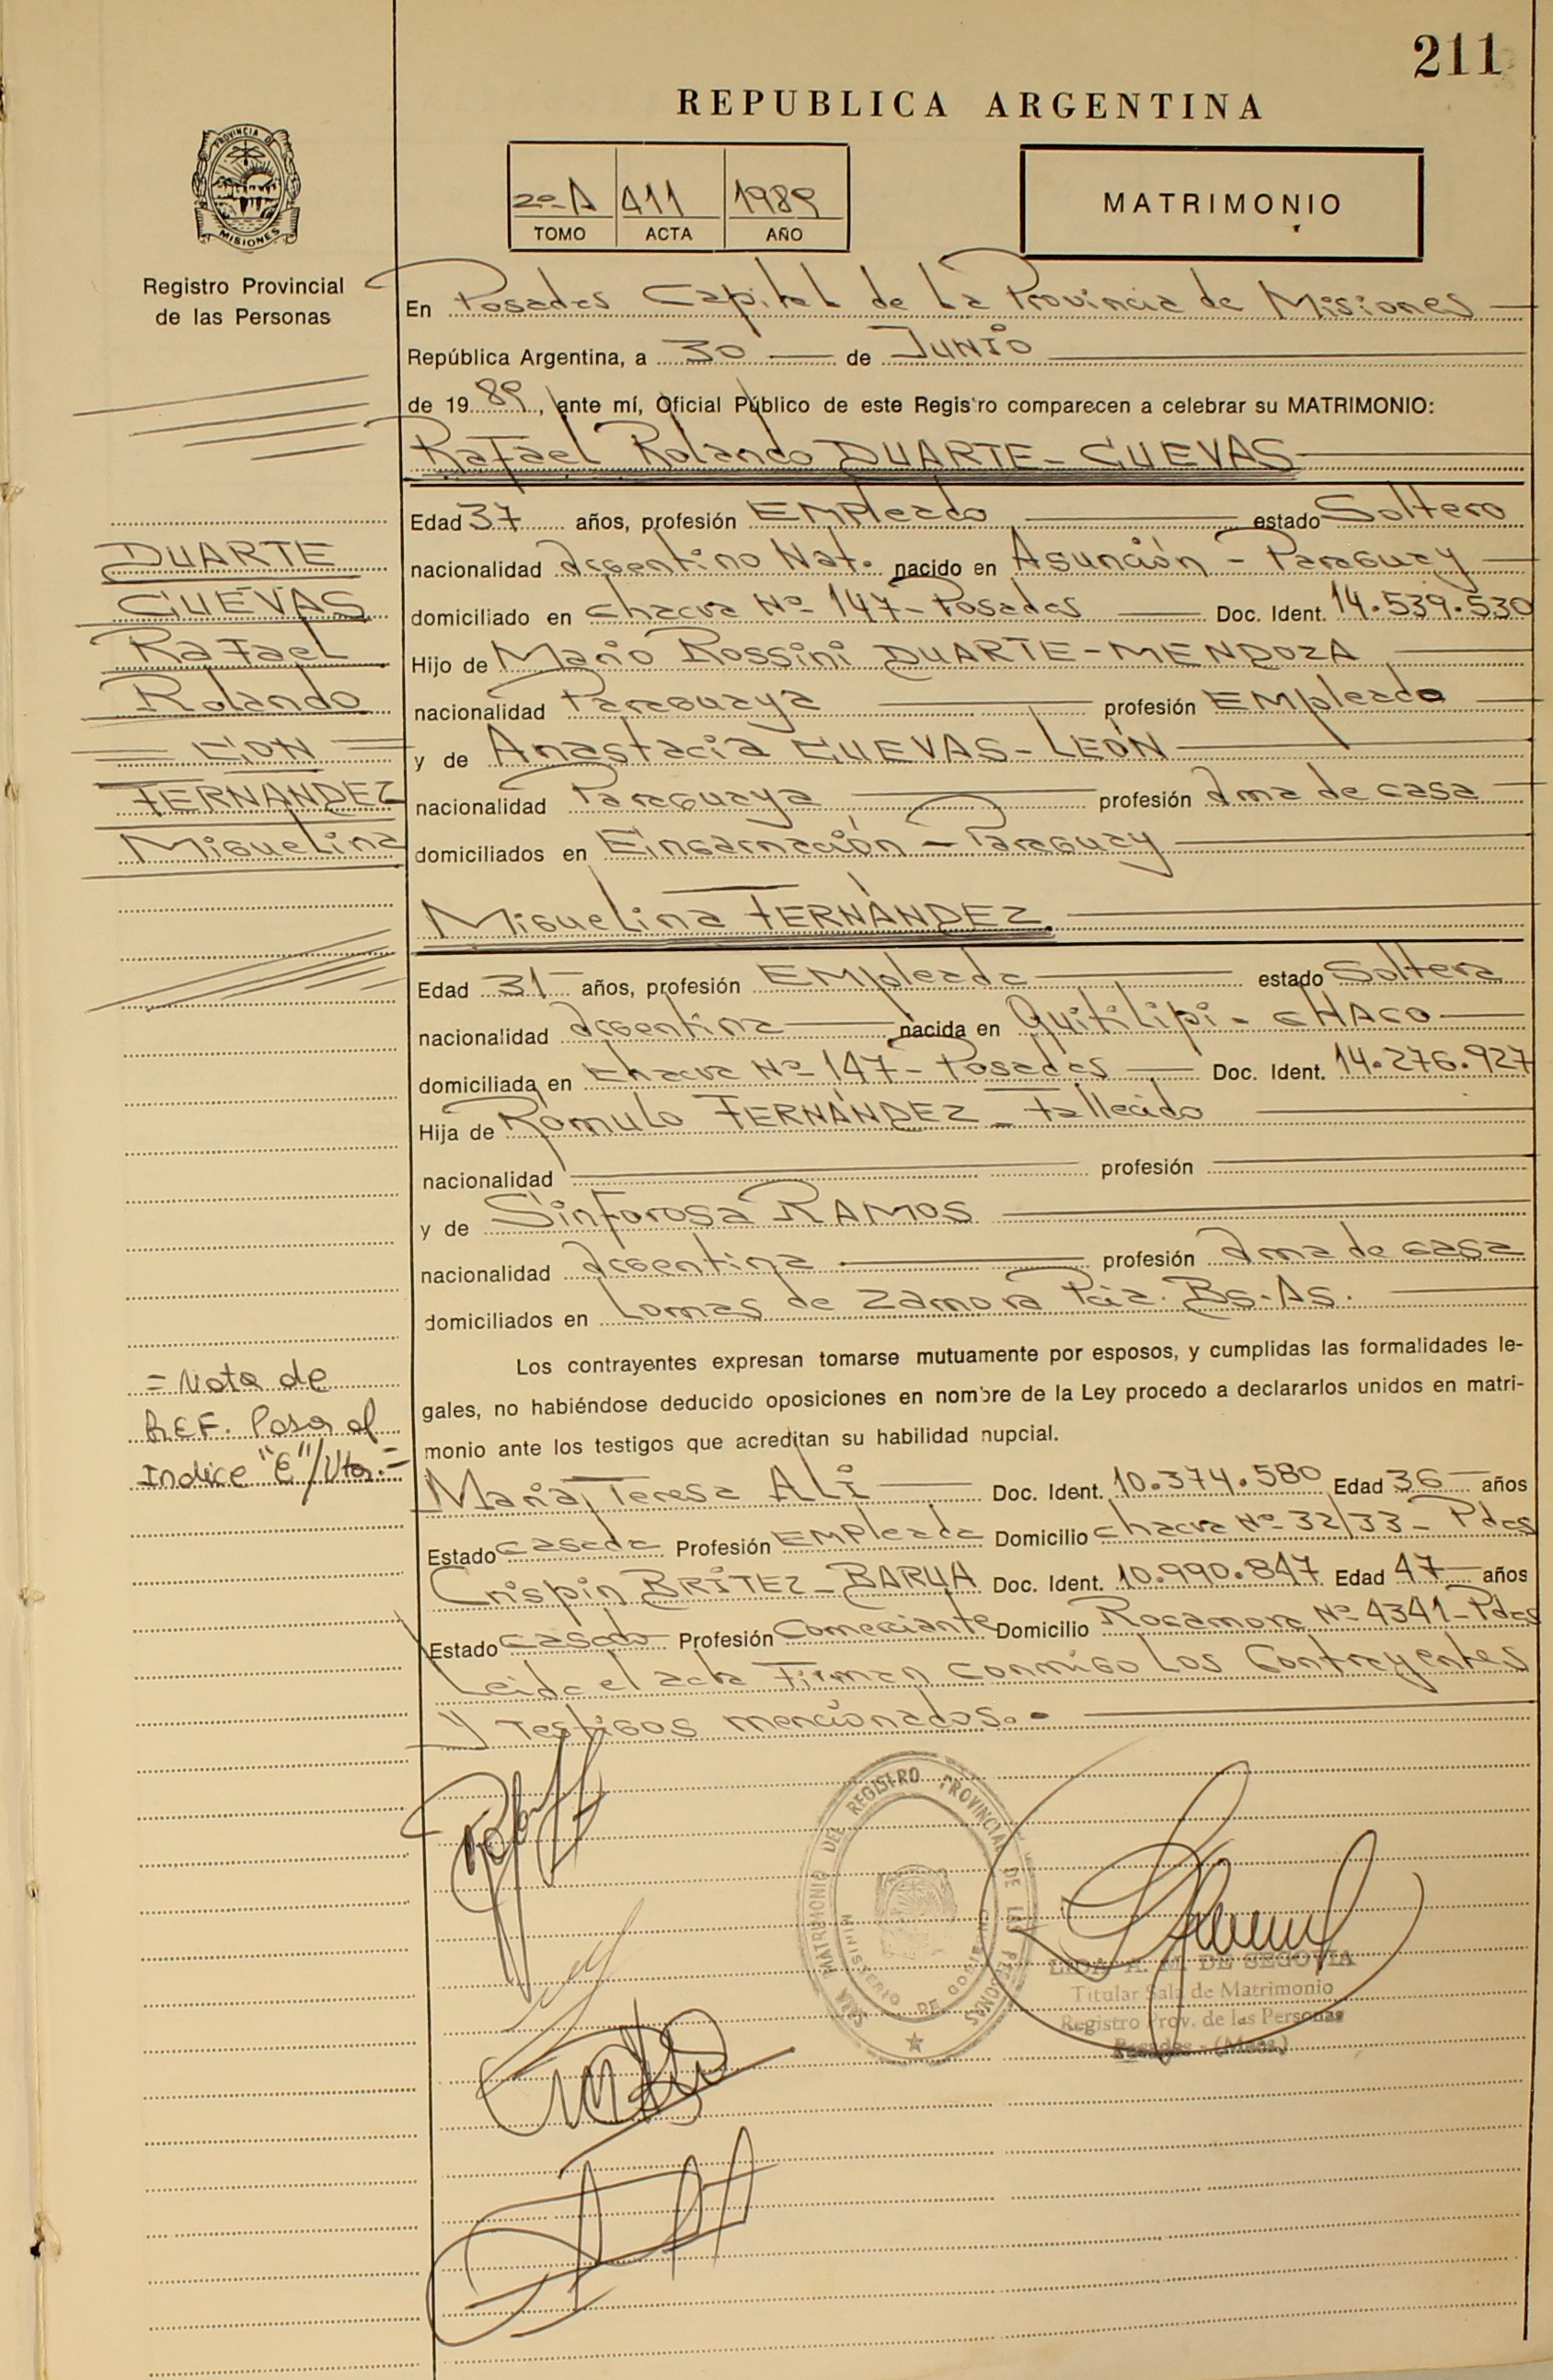 211
REPUBLICA ARGENTINA
PROVINCIA DE
MISIONES
Registro Provincial
de las Personas
2º A 411 1989
TOMO ACTA AÑO
MATRIMONIO
En Posadas Capital de La Provincia de Misiones
República Argentina, a 30 de JUNIO
de 19 89, ante mí, Oficial Público de este Registro comparecen a celebrar su MATRIMONIO:
Rafael Rolando DUARTE - CUEVAS
Edad 37 años, profesión EMPleado estado Soltero
nacionalidad Argentino Nat. nacido en Asunción - Paraguay
domiciliado en chacra Nº 147 - Posadas Doc. Ident. 14.539.530
Hijo de Mario Rossini DUARTE - MENDOZA
nacionalidad Paraguaya profesión EMpleado
y de Anastacia CUEVAS - LEÓN
nacionalidad Paraguaya profesión Ama de casa
domiciliados en Encarnación - Paraguay
DUARTE
CUEVAS
Rafael
Rolando
CON
FERNANDEZ
Miguelina
Miguelina FERNÁNDEZ
Edad 31 años, profesión EMpleada estado Soltera
nacionalidad Argentina nacida en Quitilipi - CHACO
domiciliada en chacra Nº 147 - Posadas Doc. Ident. 14.276.927
Hija de Romulo FERNÁNDEZ - Fallecido
nacionalidad profesión
y de Sinforosa RAMOS
nacionalidad Argentina profesión Ama de casa
domiciliados en Lomas de Zamora Pcia. Bs. As.
Los contrayentes expresan tomarse mutuamente por esposos, y cumplidas las formalidades le-
gales, no habiéndose deducido oposiciones en nombre de la Ley procedo a declararlos unidos en matri-
monio ante los testigos que acreditan su habilidad nupcial.
= Nota de
REF. Pasa al
Indice "E"/Vta.=
María Teresa ALI Doc. Ident. 10.374.580 Edad 36 años
Estado casada Profesión EMPleada Domicilio chacra Nº 32/33 - Pdas
Crispin BRITEZ - BARUA Doc. Ident. 10.990.847 Edad 47 años
Estado casado Profesión Comerciante Domicilio Rocamora Nº 4341 - Pdas
Leida el acta Firman conmigo Los Contrayentes
y Testigos mencionados.-
SALA MATRIMONIO DEL REGISTRO PROVINCIAL DE LAS PERSONAS
MINISTERIO DE GOBIERNO
LIDA A. M. DE SEGOVIA
Titular Sala de Matrimonio
Registro Prov. de las Personas
Posadas - (Mnes.)